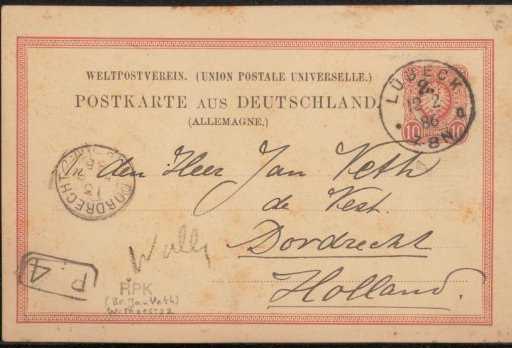 WELTPOSTVEREIN. (UNION POSTALE UNIVERSELLE.)
POSTKARTE AUS DEUTSCHLAND.
(ALLEMAGNE.)
LÜBECK
12 2
86
7-8N
10 PFENNIG 10
DORDRECHT
13
den Heer Jan Veth
de Kest.
Dordrecht
Holland.
Wally
P. 4
RPK
(Br. Jan Veth)